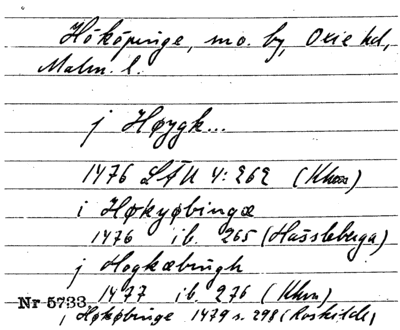 Hököpinge, sn o. by, Oxie hd,
Malm. l.
j Høygk...
1476 LÄU 4: 262 (Khvn)
i Høkyøbingæ
1476 ib. 265 (Hassleberga)
j Hogkæbingh
1477 ib. 276 (Khvn)
Nr 5733
j Høkøbinge 1479 s. 298 (Roskilde)